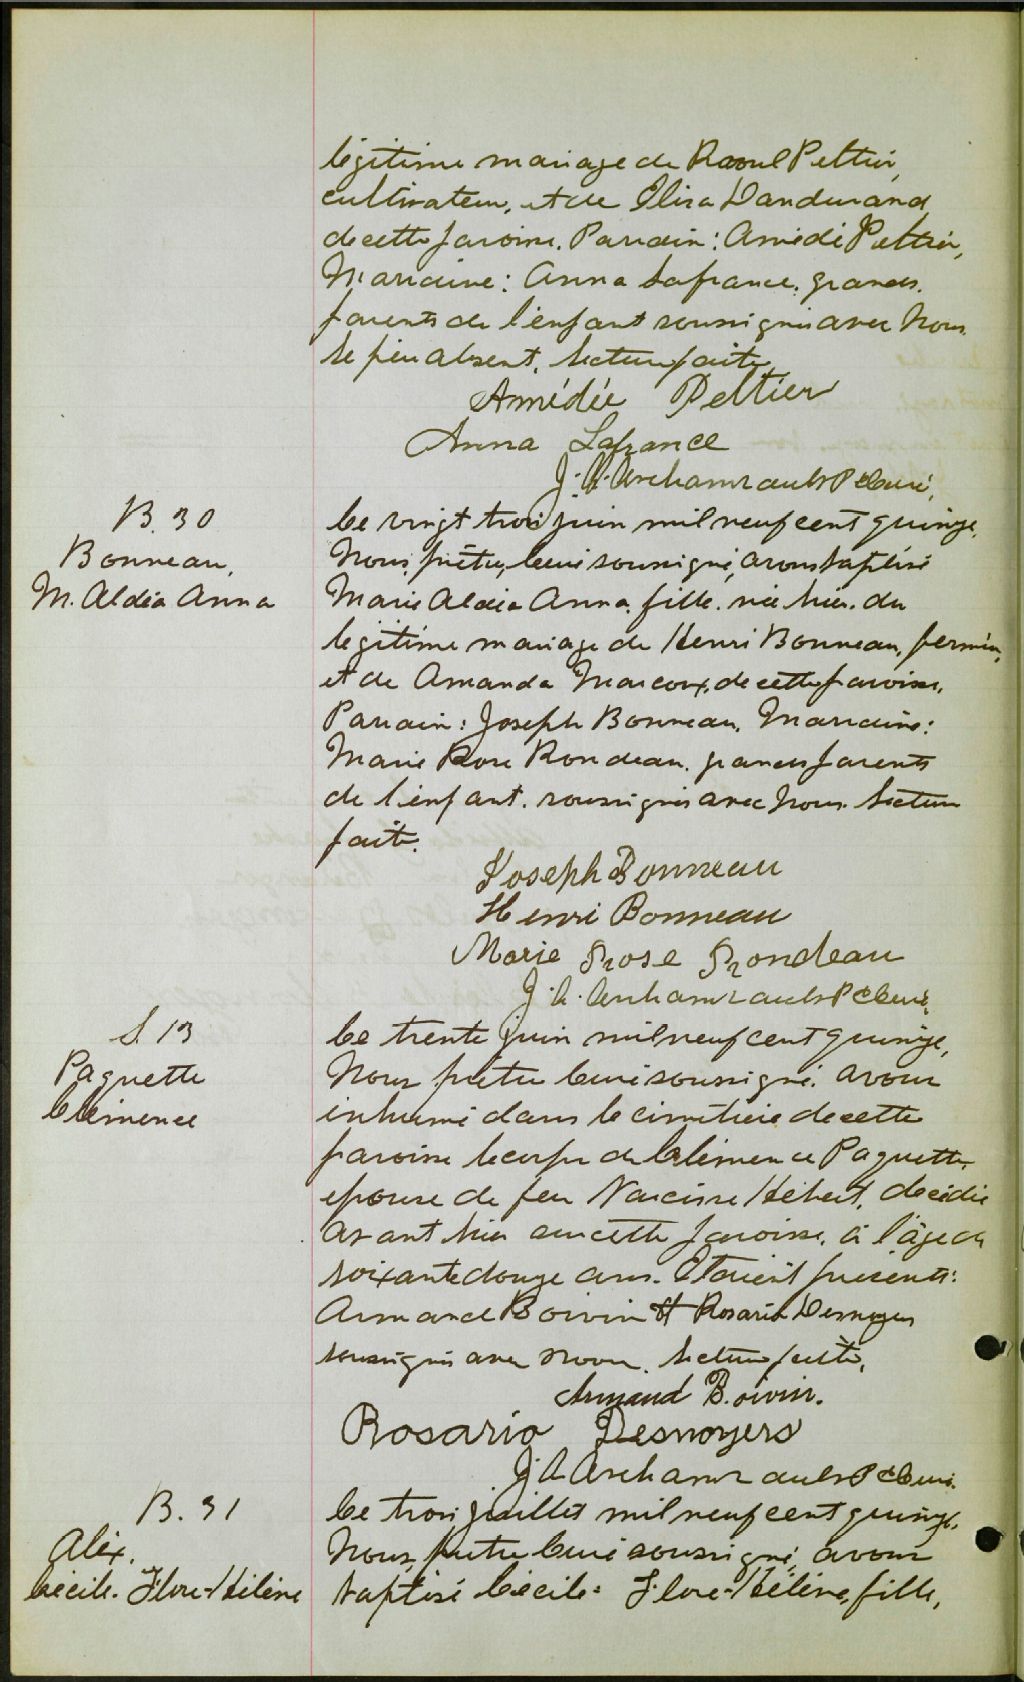 légitime mariage de Raoul Peltier,
cultivateur, et de Eliza Dandurand
de cette paroisse. Parrain: Amédé Peltier,
Marraine: Anna Lafrance, grands.
parents de l'enfant soussignés avec Nous.
le père absent. Lecture faite
Amédée Peltier
Anna Lafrance
J. A. Archambault Ptre Curé.
B. 30
Bonneau,
M. Aldéa Anna
Le vingt trois juin mil neuf cent quinze,
Nous, prêtre, Curé soussigné, avons baptisé
Marie Aldéa Anna, fille, née hier, du
légitime mariage de Henri Bonneau, fermier,
et de Amanda Marcoux, de cette paroisse.
Parrain: Joseph Bonneau. Marraine:
Marie Rose Rondeau, grands parents
de l'enfant. soussignés avec Nous. Lecture
faite.
Joseph Bonneau
Henri Bonneau
Marie Rose Rondeau
J. A. Archambault Ptre Curé.
S. 13
Paquette
Clémence
Le trente juin mil neuf cent quinze,
Nous prêtre Curé soussigné, avons
inhumé dans le cimetière de cette
paroisse le corps de Clémence Paquette,
épouse de feu Narcisse Hébert, décédée
avant hier en cette paroisse, à l'âge de
soixante douze ans. Étaient présents:
Armand Boivin et Rosario Desnoyers
soussignés avec Nous. Lecture faite,
Armand Boivin.
Rosario Desnoyers
J. A. Archambault Ptre Curé.
B. 31
Alix,
Cécile. Flore-Hélène
Le trois juillet mil neuf cent quinze,
Nous, prêtre Curé soussigné, avons
baptisé Cécile= Flore-Hélène, fille,